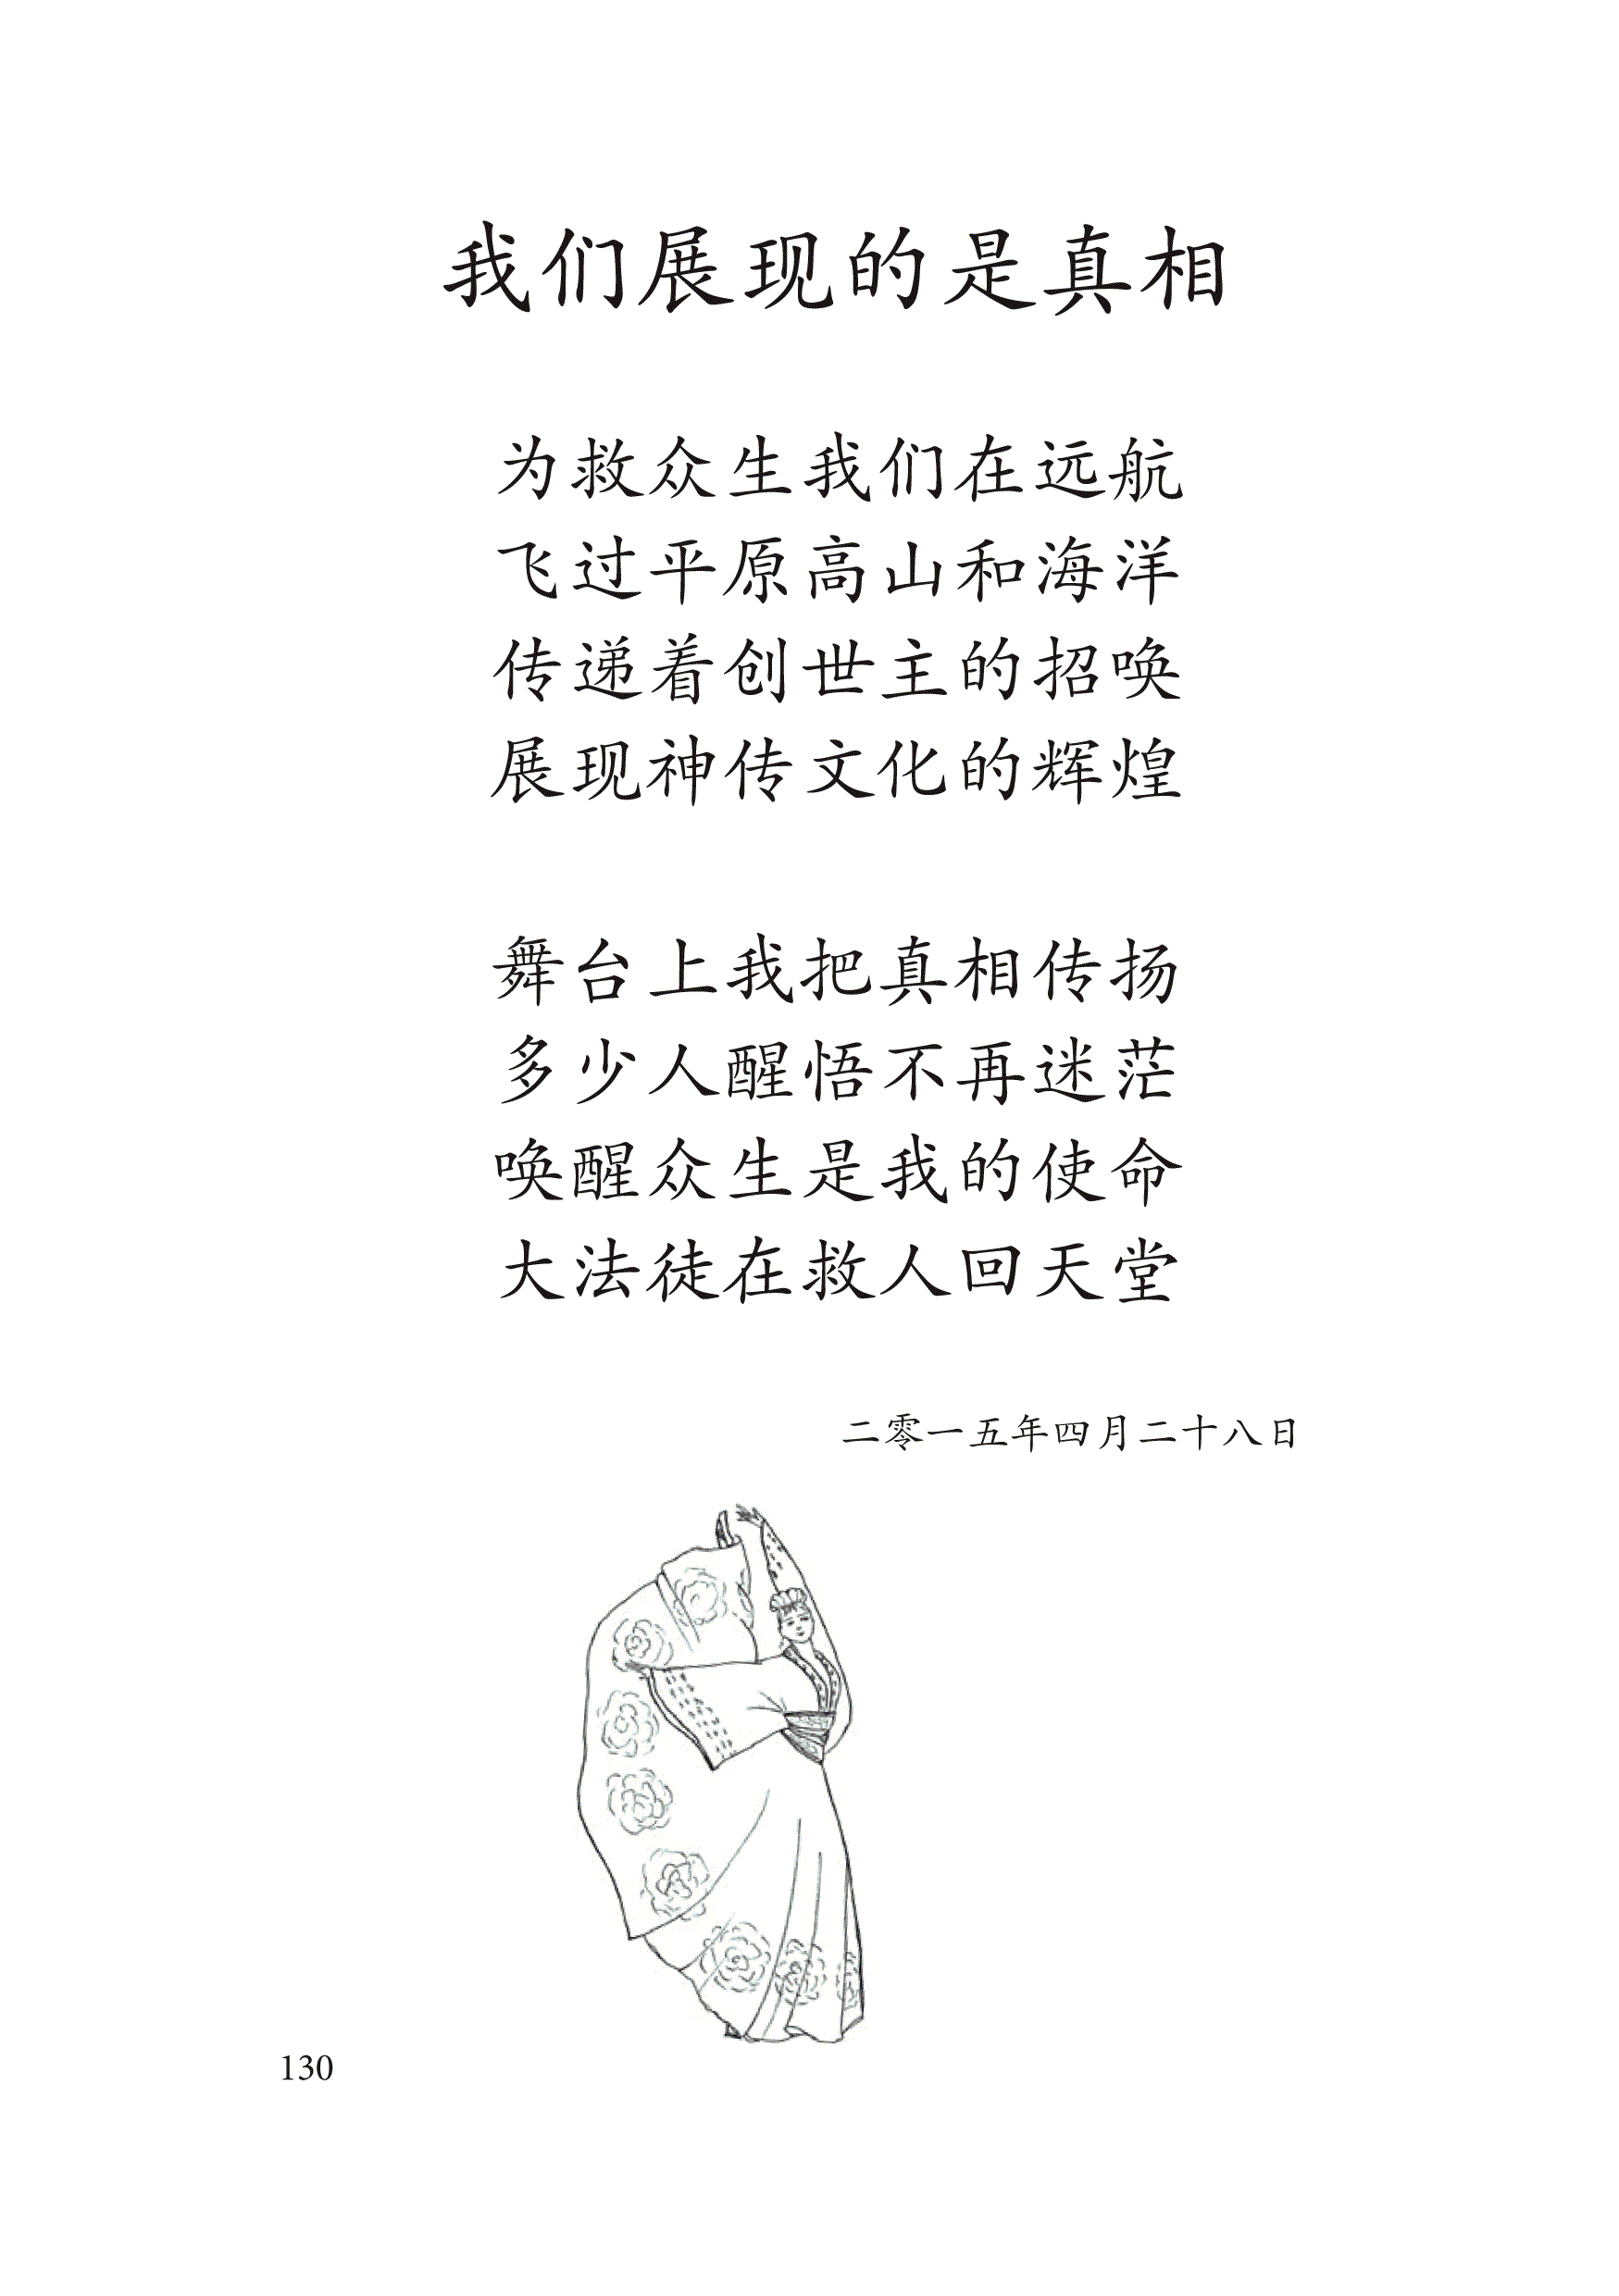 我们展现的是真相
为救众生我们在远航
飞过平原高山和海洋
传递着创世主的招唤
展现神传文化的辉煌
舞台上我把真相传扬
多少人醒悟不再迷茫
唤醒众生是我的使命
大法徒在救人回天堂
二零一五年四月二十八日
130